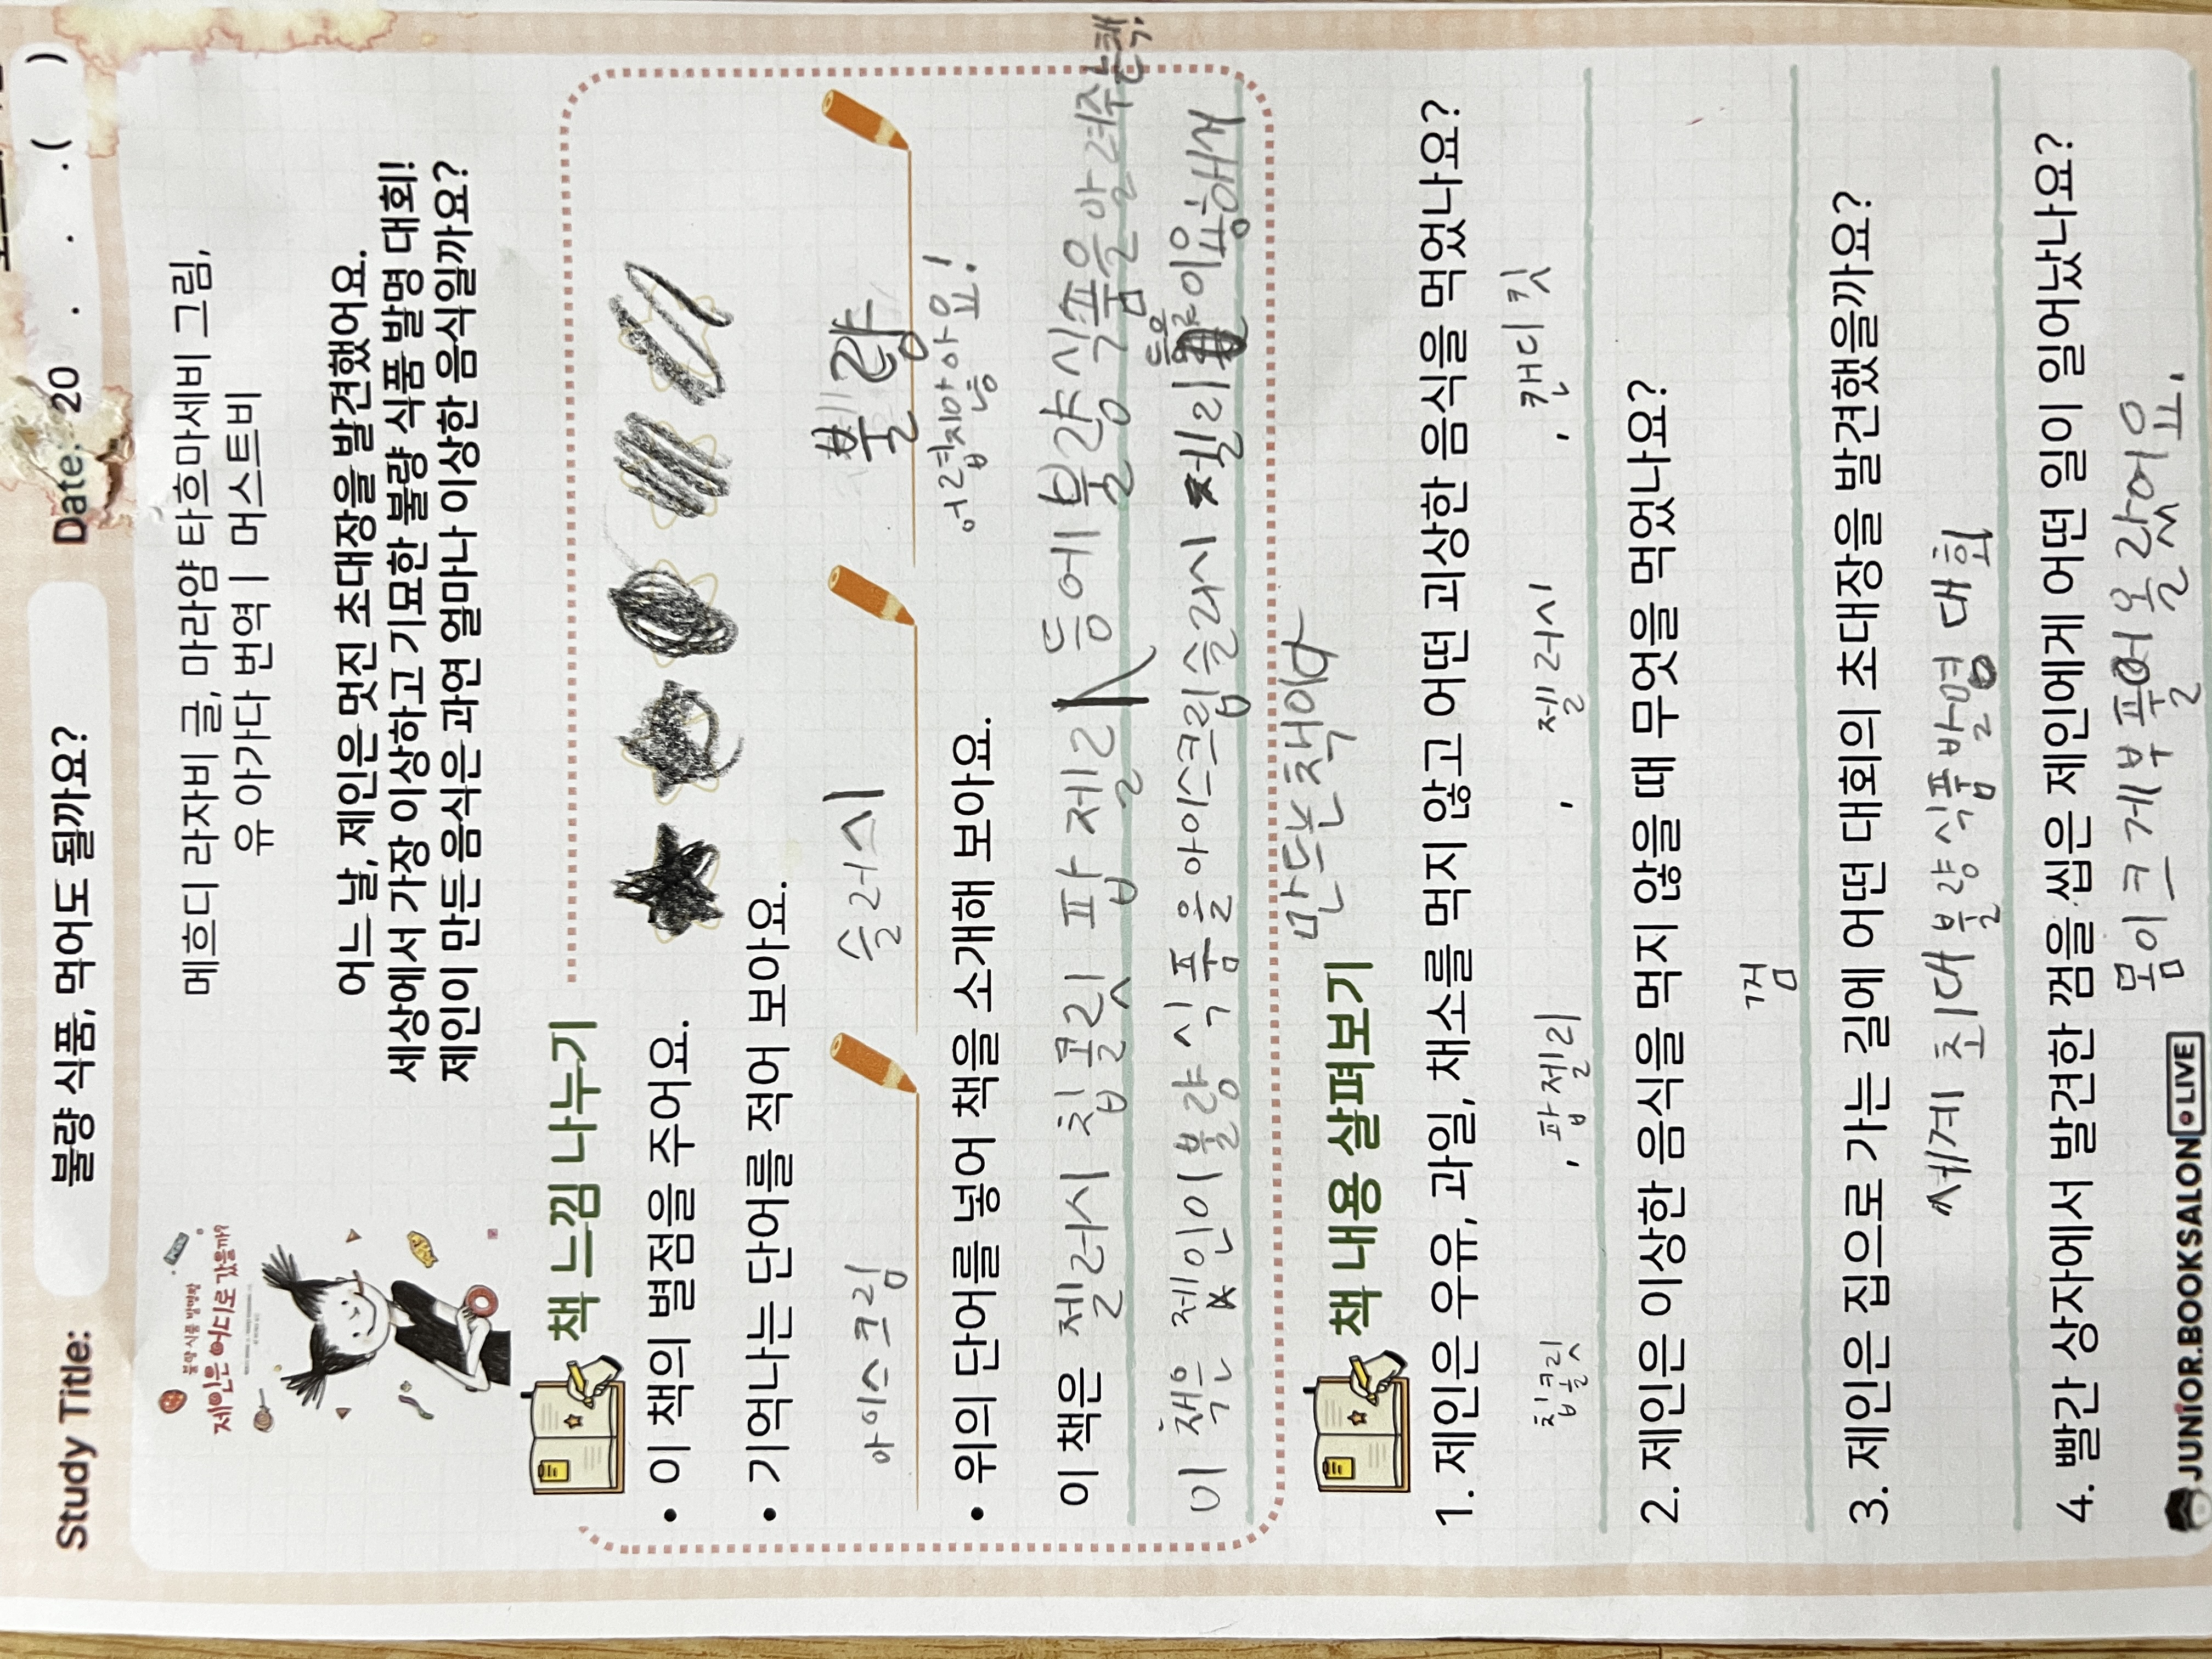 Study Title:
불량 식품, 먹어도 될까요?
Date. 20 . . .( )
불량 식품 발명왕
제인은 어디로 갔을까?
메흐디 라자비 글, 마라얌 타흐마세비 그림,
유 아가다 번역 | 머스트비
어느 날, 제인은 멋진 초대장을 발견했어요.
세상에서 가장 이상하고 기묘한 불량 식품 발명 대회!
제인이 만든 음식은 과연 얼마나 이상한 음식일까요?
책 느낌 나누기
• 이 책의 별점을 주어요.
• 기억나는 단어를 적어 보아요.
아이스크림 슬러시 불량
어렵지만 않아요!
• 위의 단어를 넣어 책을 소개해 보아요.
이 책은 젤러시 칩콜릿 팝 젤리 등에 불량식품을 알려주는 책.
이 책은 제인이 불량 식품을 아이스크림 슬러시 젤리 등을 이용해서
만드는 책이다
책 내용 살펴보기
1. 제인은 우유, 과일, 채소를 먹지 않고 어떤 괴상한 음식을 먹었나요?
칩콜릿 , 팝젤리 , 젤러시 , 캔디칫
2. 제인은 이상한 음식을 먹지 않을 때 무엇을 먹었나요?
껌
3. 제인은 집으로 가는 길에 어떤 대회의 초대장을 발견했을까요?
세계 최대 불량식품 발명 대회
4. 빨간 상자에서 발견한 껌을 씹은 제인에게 어떤 일이 일어났나요?
몸이 크게 부풀어 올랐어요.
JUNIOR.BOOKSALON LIVE